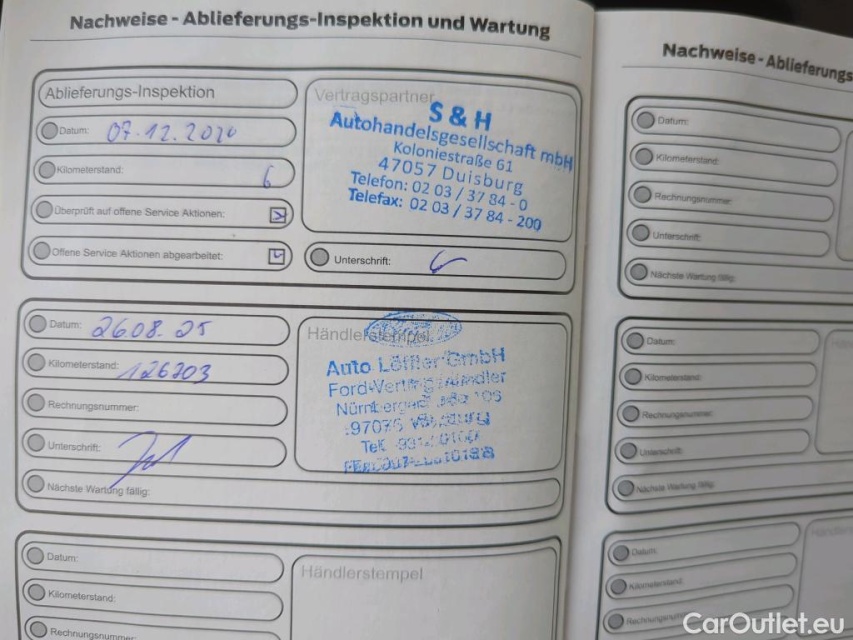 Nachweise - Ablieferungs-Inspektion und Wartung
Ablieferungs-Inspektion
Datum: 07.12.2020
Kilometerstand: 6
Überprüft auf offene Service Aktionen:
Offene Service Aktionen abgearbeitet:
Vertragspartner
S & H
Autohandelsgesellschaft mbH
Koloniestraße 61
47057 Duisburg
Telefon: 02 03 / 37 84 - 0
Telefax: 02 03 / 37 84 - 200
Unterschrift:
Datum: 26.08.25
Kilometerstand: 126203
Rechnungsnummer:
Unterschrift:
Nächste Wartung fällig:
Händlerstempel
Auto Löffler GmbH
97076
Datum:
Kilometerstand:
Rechnungsnummer
Händlerstempel
Nachweise - Ablieferungs
Datum:
Kilometerstand:
Rechnungsnummer:
Unterschrift:
Nächste Wartung fällig:
Datum:
Kilometerstand:
Rechnungsnummer:
Unterschrift:
Nächste Wartung fällig:
Datum:
Kilometerstand:
CarOutlet.eu